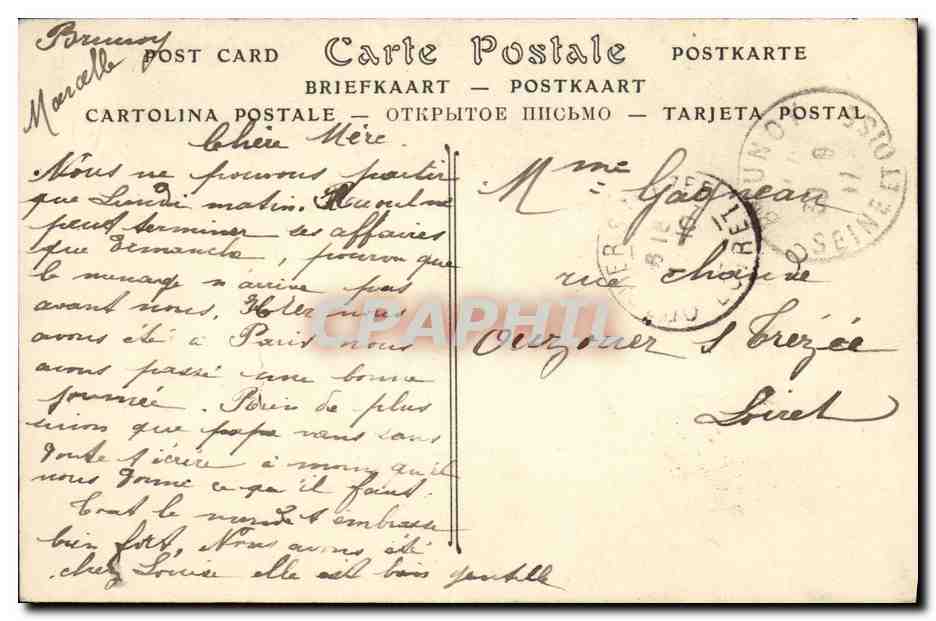 Brunoy
Marcelle
POST CARD Carte Postale POSTKARTE
BRIEFKAART — POSTKAART
CARTOLINA POSTALE — ОТКРЫТОЕ ПИСЬМО — TARJETA POSTAL
Chère Mère.
Nous ne pouvons partir
que Lundi matin. ne
peut terminer ses affaires
que Dimanche, pourvu que
le menage n'arrive pas
avant nous. Hier nous
avons été à Paris nous
avons passé une bonne
journée. Rien de plus
sinon que papa vous
doute t'écrire à moins qu'il
nous donne ce qu'il faut.
Tout le monde t'embrasse
bien fort, Nous avons été
chez Louise elle est bien gentille
Mme Gagneau
rue chaude
Ouzouer s Trézée
Loiret
BRUNOY
SEINE ET OISE
LOIRET
CPAPHIL